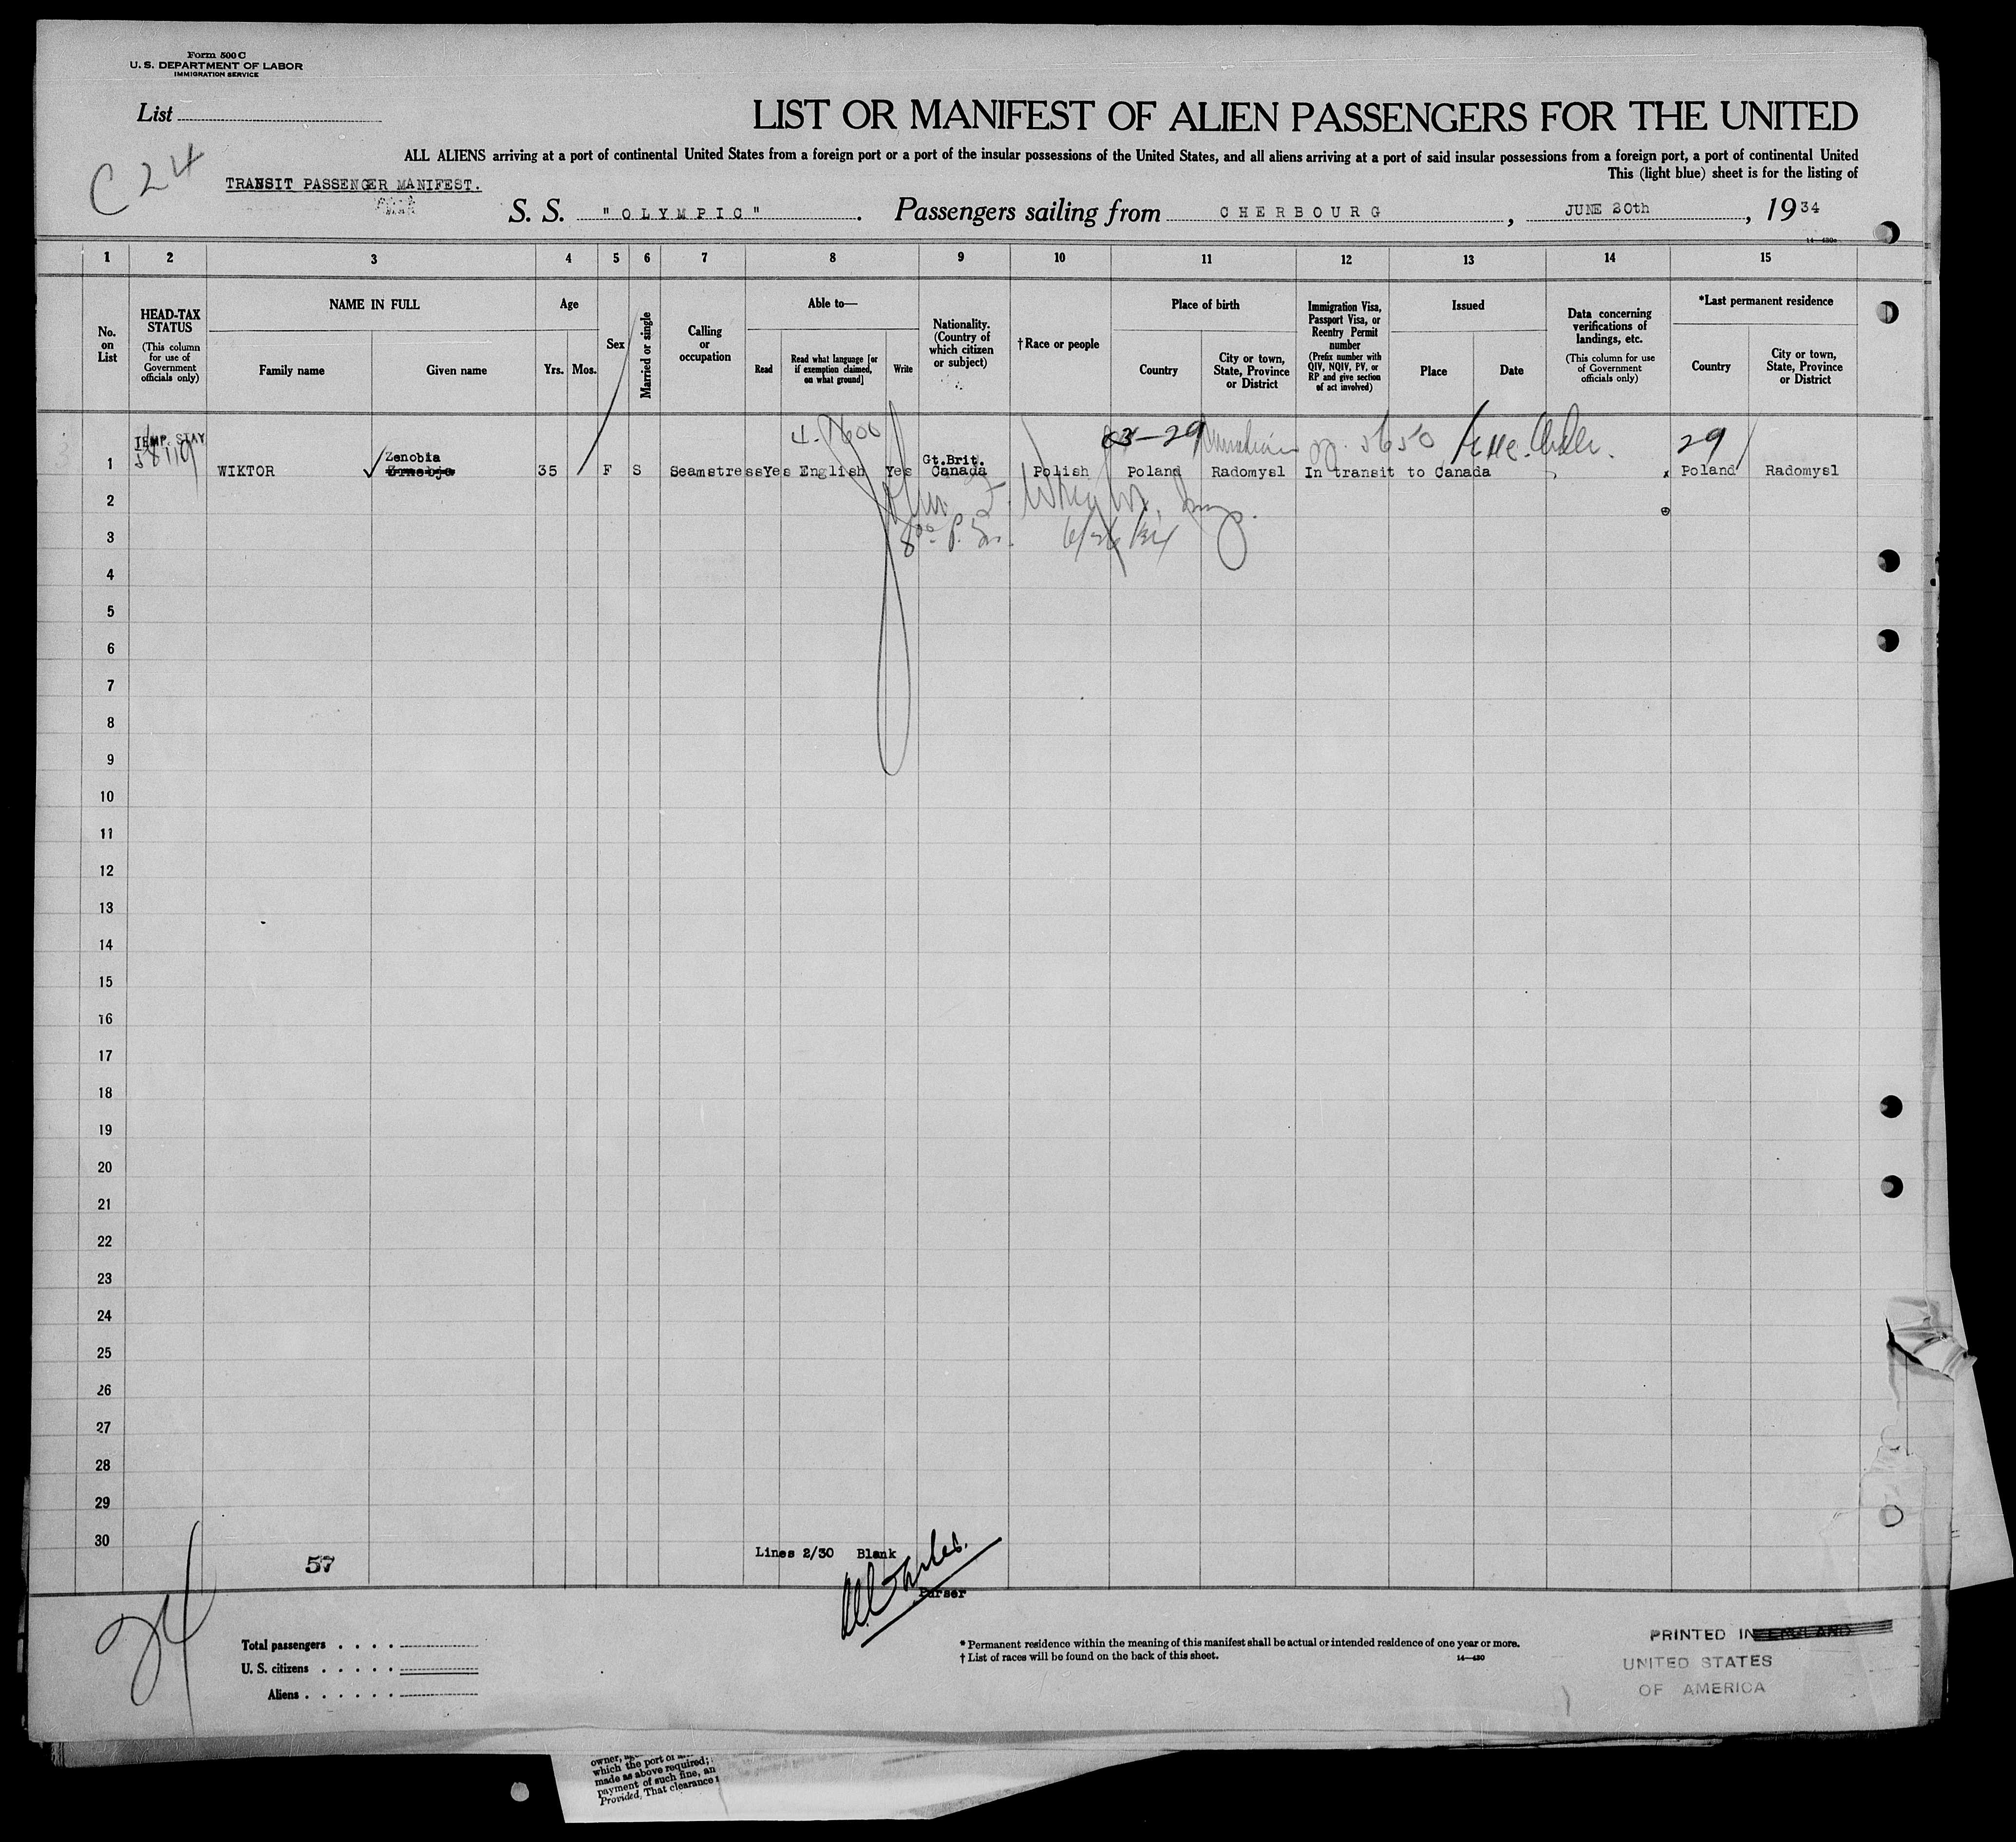 Form 500 C
U. S. DEPARTMENT OF LABOR
IMMIGRATION SERVICE
List
LIST OR MANIFEST OF ALIEN PASSENGERS FOR THE UNITED
C 24
ALL ALIENS arriving at a port of continental United States from a foreign port or a port of the insular possessions of the United States, and all aliens arriving at a port of said insular possessions from a foreign port, a port of continental United
This (light blue) sheet is for the listing of
TRANSIT PASSENGER MANIFEST.
S. S. "OLYMPIC". Passengers sailing from CHERBOURG, JUNE 20th, 1934
14—430a
1 2 3 4 5 6 7 8 9 10 11 12 13 14 15
No. on List
HEAD-TAX STATUS
(This column for use of Government officials only)
NAME IN FULL
Family name Given name
Age
Yrs. Mos.
Sex
Married or single
Calling or occupation
Able to—
Read
Read what language [or if exemption claimed, on what ground]
Write
Nationality. (Country of which citizen or subject)
†Race or people
Place of birth
Country
City or town, State, Province or District
Immigration Visa, Passport Visa, or Reentry Permit number
(Prefix number with QIV, NQIV, PV, or RP and give section of act involved)
Issued
Place Date
Data concerning verifications of landings, etc.
(This column for use of Government officials only)
*Last permanent residence
Country
City or town, State, Province or District
TEMP. STAY
29
Zenobia
Gt.Brit.
1 WIKTOR 35 F S Seamstress Yes English Yes Canada Polish Poland Radomysl In transit to Canada x Poland Radomysl
2
3
6/26/34
4
5
6
7
8
9
10
11
12
13
14
15
16
17
18
19
20
21
22
23
24
25
26
27
28
29
30
57
Lines 2/30 Blank
Purser
24
Total passengers
U. S. citizens
Aliens
* Permanent residence within the meaning of this manifest shall be actual or intended residence of one year or more.
† List of races will be found on the back of this sheet.
14—430
PRINTED IN ENGLAND
UNITED STATES
OF AMERICA
which the port of
made as above required;
payment of such fine, an
Provided, That clearance